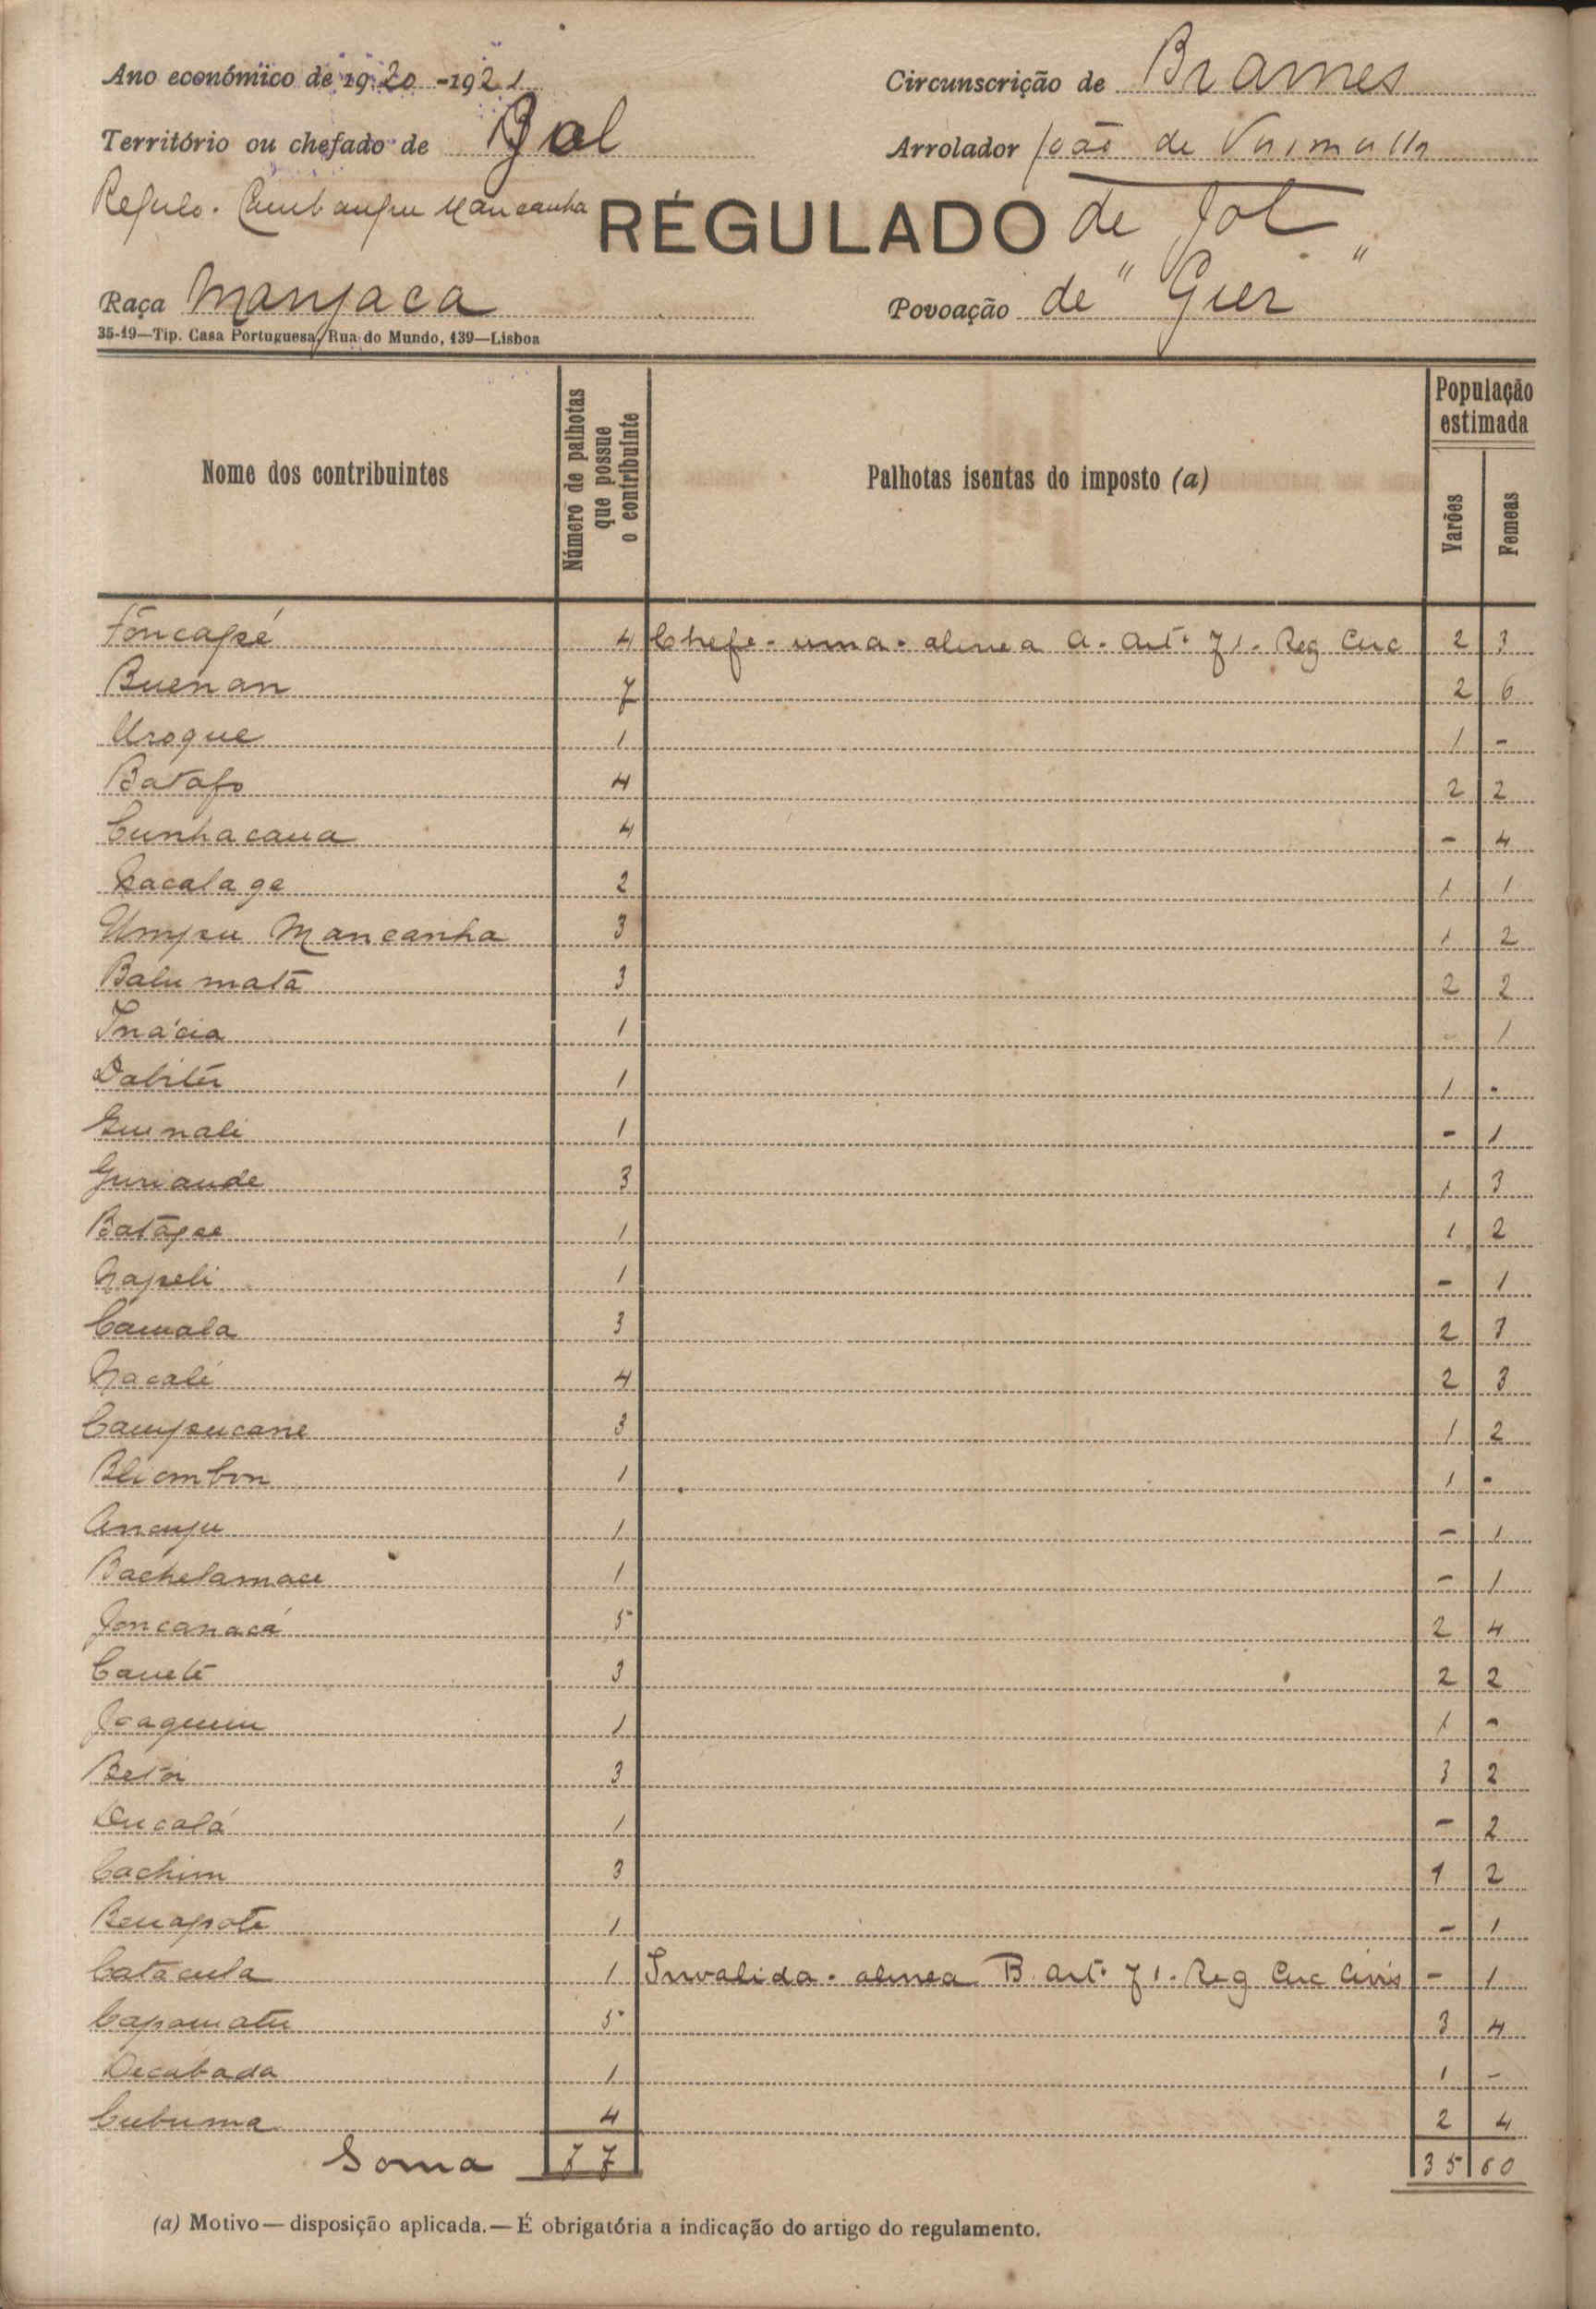 Ano económico de 1920-1921
Circunscrição de Brames
Território ou chefado de Jol
Arrolador João de
Regulo. Mancanha RÉGULADO de Jol
Raça Manjaca
Povoação de "Guer"
35-19—Tip. Casa Portuguesa, Rua do Mundo, 139—Lisboa
Nome dos contribuintes
Número de palhotas que possue o contribuinte
Palhotas isentas do imposto (a)
População estimada
Varões
Femeas
Foncapé 4 Chefe - uma - alinea A. Artº 71. Reg Circ 2 3
Buenan 7 2 6
Uroque 1 1 -
Batafo 4 2 2
Cunhacaua 4 - 4
Cacalage 2 1 1
Umpu Mancanha 3 1 2
Balumatã 3 2 2
Inácia 1 - 1
1 1 -
Guinali 1 - 1
Guriande 3 1 3
1 1 2
Napeli 1 - 1
Camala 3 2 3
Nacalé 4 2 3
Campucane 3 1 2
Bliombon 1 1 -
1 - 1
Bachelamace 1 - 1
Joncanacá 5 2 4
Caueté 3 2 2
Joaquim 1 1 -
3 3 2
Ducalá 1 - 2
Cachim 3 1 2
Benapote 1 - 1
Catacula 1 Invalida - alinea B. artº 71. Reg Circ Civis - 1
Capamatu 5 3 4
Decabada 1 1 -
Cubuma 4 2 4
Soma 77 35 60
(a) Motivo—disposição aplicada.—É obrigatória a indicação do artigo do regulamento.